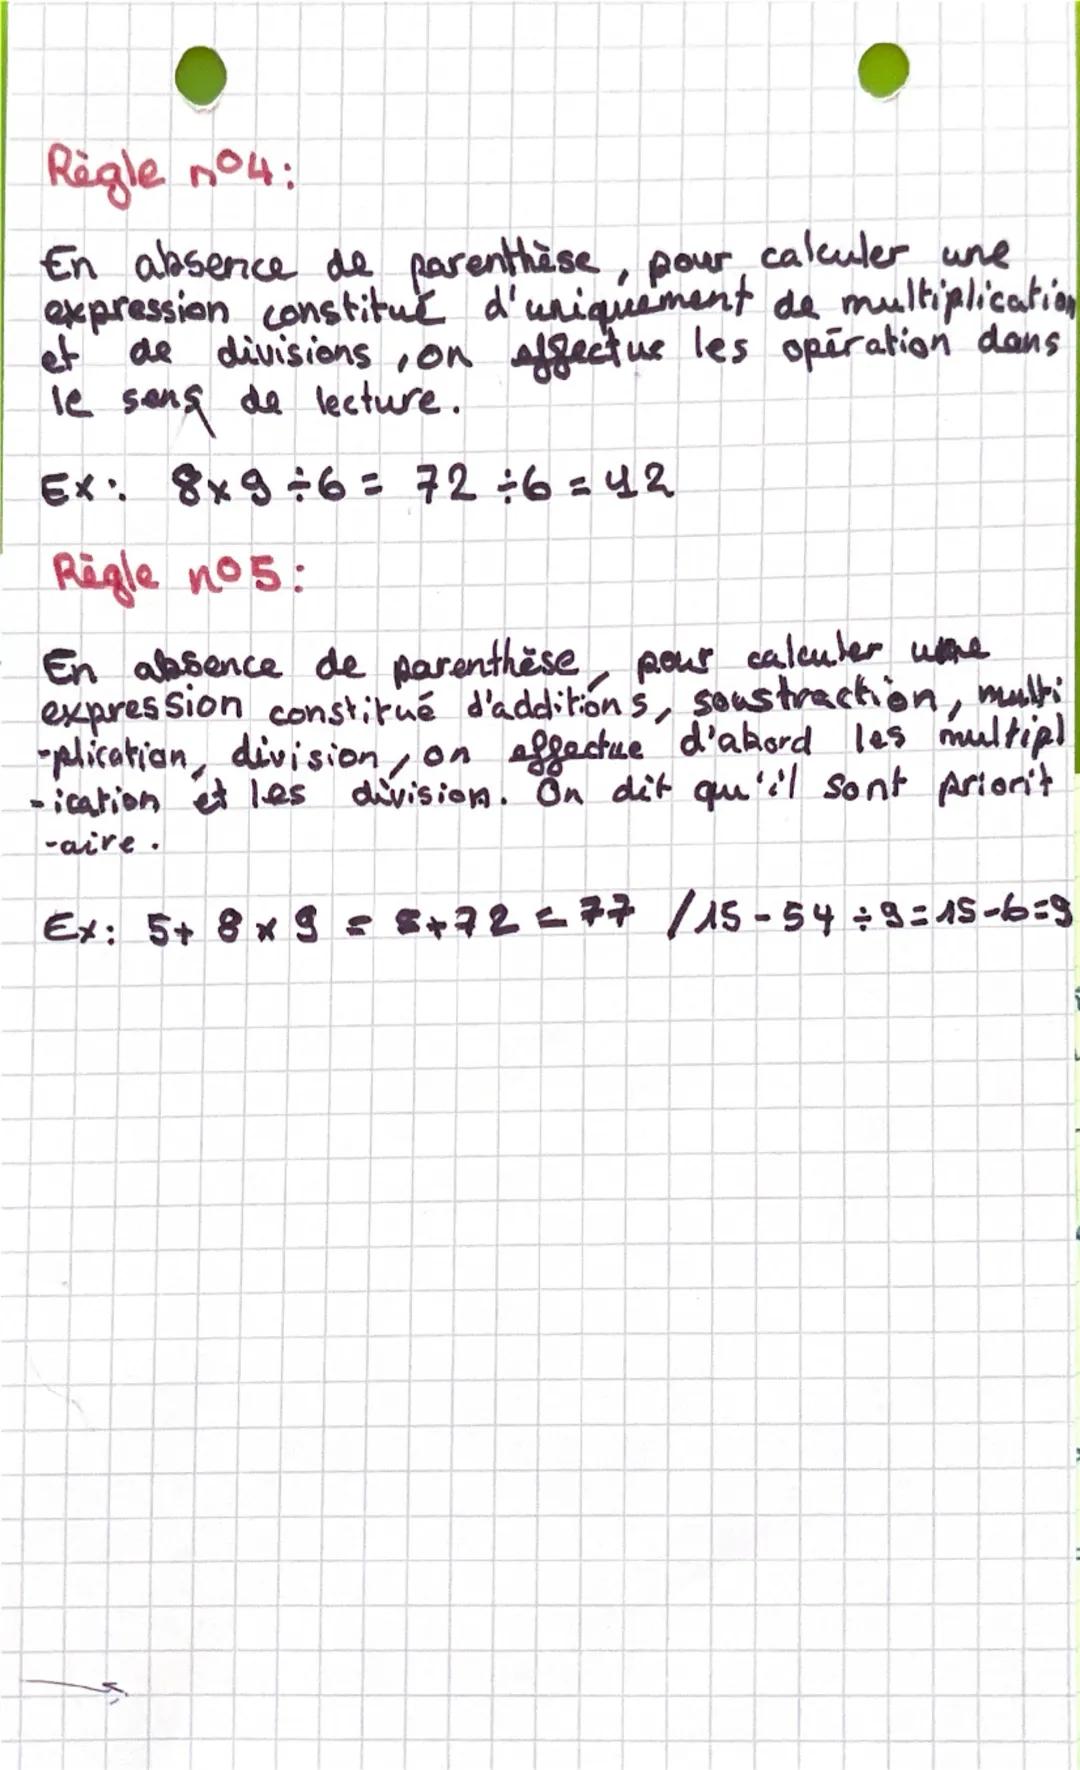 Règle n°4:
En absence de parenthèse, pour calculer une
expression constitué d'uniquement de multiplication
et de divisions, on effectue les opération dans
le sens de lecture.
Ex: 8×9÷6 = 72÷6 = 12
Règle n°5:
En absence de parenthèse, pour calculer une
expression constitué d'additions, soustraction, multi
-plication, division, on effectue d'abord les multipl
-ication et les division. On dit qu'il sont priorit
-aire.
Ex: 5+ 8×9 = 5+72 = 77 /15-54÷9=15-6=9